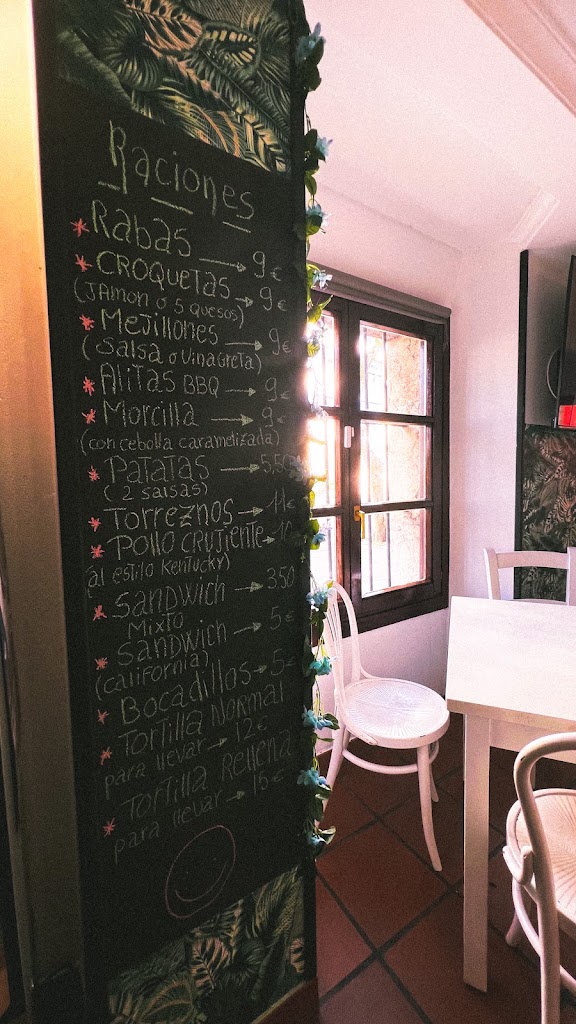 Raciones
* Rabas → 9€
* CROQUETAS → 9€
(JAMON o 5 QUESOS)
* Mejillones → 9€
(salsa o vinagreta)
* Alitas BBQ → 9€
* Morcilla → 9€
(con cebolla caramelizada)
* PATATAS → 5,50
(2 salsas)
* Torreznos → 11€
* POLLO CRUJIENTE →
(al estilo Kentucky)
* SANDWICH → 3,50
MIXTO
* SANDWICH → 5€
(california)
* Bocadillos → 5€
* TORTILLA NORMAL
para llevar → 12€
* TORTILLA Rellena
para llevar → 15€